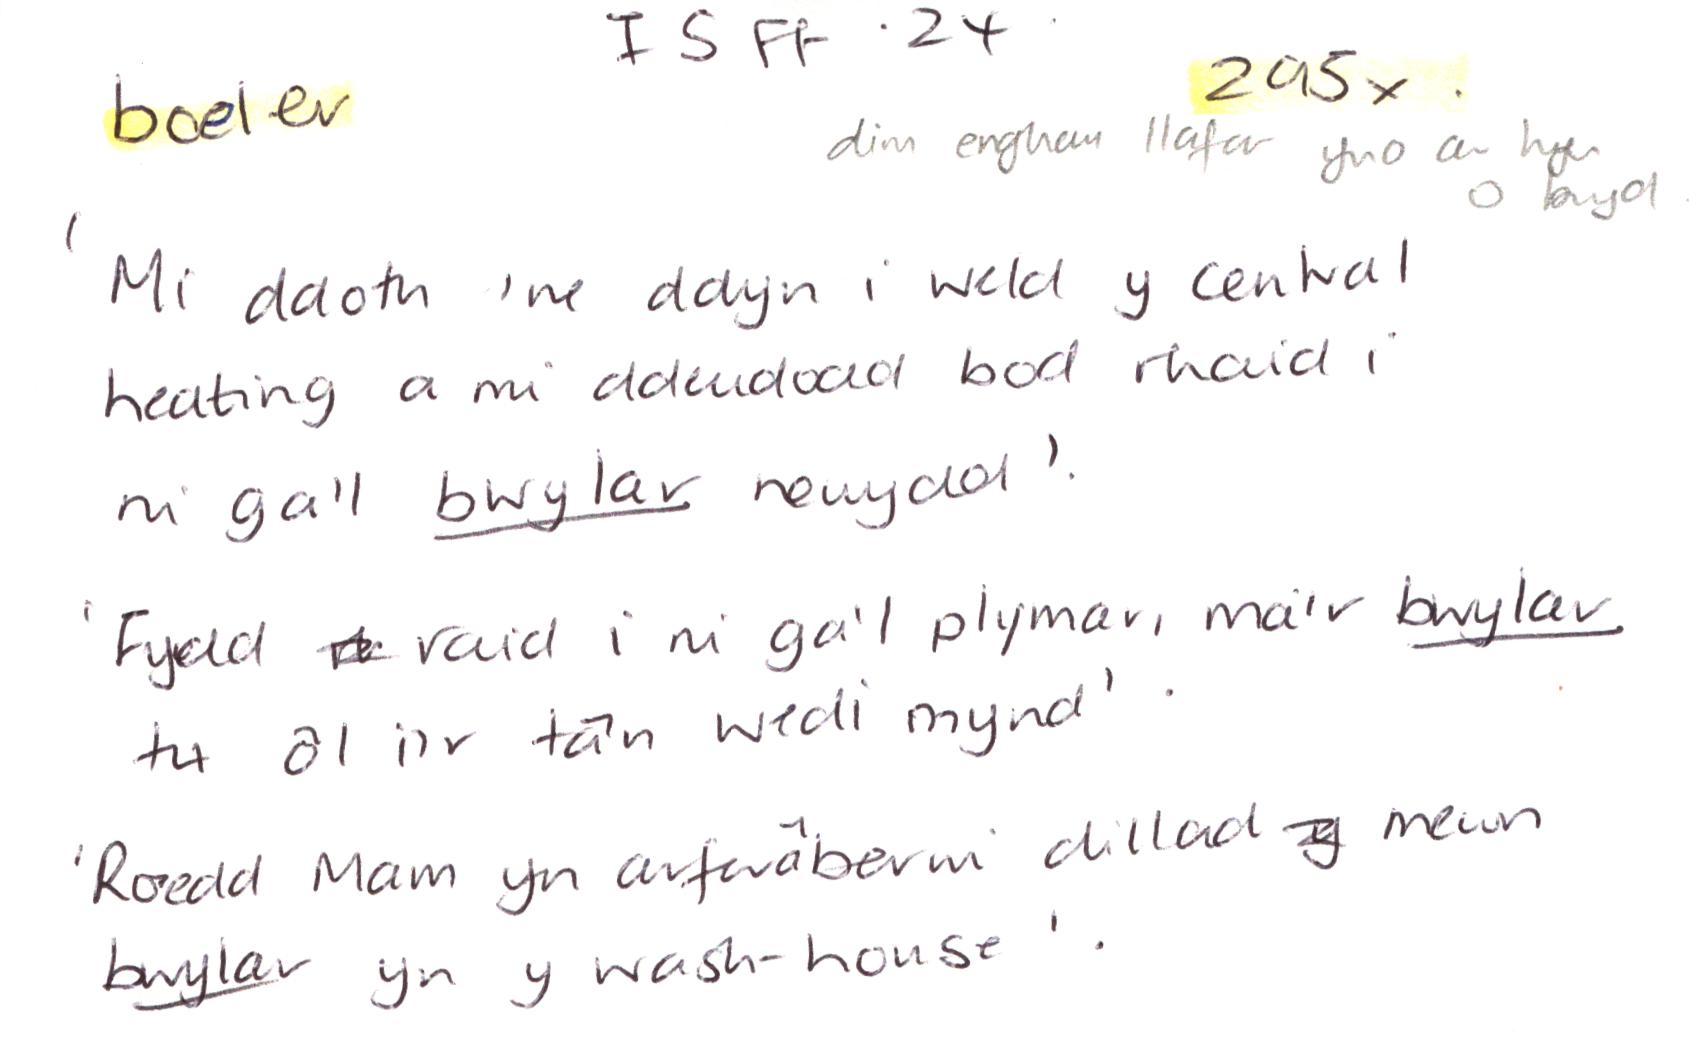 I S Ff · 24
boeler
295x.
dim enghrau llafar yno a'r hyn
o bryd.
'Mi ddoth 'ne ddyn i weld y central
heating a mi ddeudodd bod rhaid i
ni ga'l bwylar newydd'.
'Fydd raid i ni ga'l plymar, ma'r bwylar
tu ôl i'r tân wedi mynd'.
'Roedd Mam yn arfar berwi dillad mewn
bwylar yn y wash-house'.